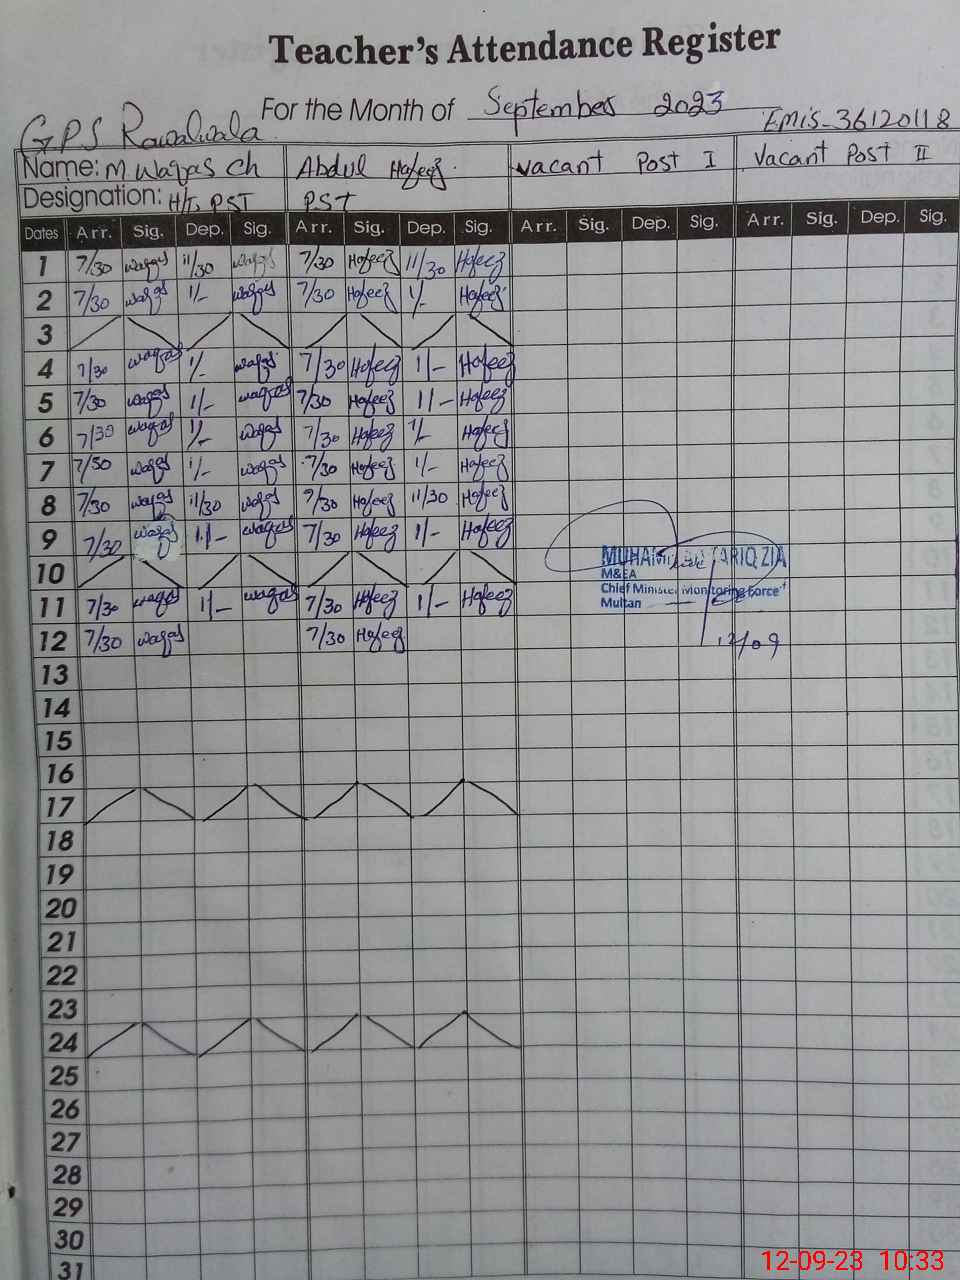 Teacher's Attendance Register
For the Month of September 2023
GPS Rawalwala
Emis-36120118
Name: M. Waqas Ch Abdul Hafeez. Vacant Post I Vacant Post II
Designation: H/T, PST PST
Dates Arr. Sig. Dep. Sig. Arr. Sig. Dep. Sig. Arr. Sig. Dep. Sig. Arr. Sig. Dep. Sig.
1 7/30 Waqas 11/30 Waqas 7/30 Hafeez 11/30 Hafeez
2 7/30 Waqas 1/- Waqas 7/30 Hafeez 1/- Hafeez
3
4 7/30 Waqas 1/- Waqas 7/30 Hafeez 1/- Hafeez
5 7/30 Waqas 1/- Waqas 7/30 Hafeez 1/- Hafeez
6 7/30 Waqas 1/- Waqas 7/30 Hafeez 1/- Hafeez
7 7/30 Waqas 1/- Waqas 7/30 Hafeez 1/- Hafeez
8 7/30 Waqas 11/30 Waqas 7/30 Hafeez 11/30 Hafeez
9 7/30 Waqas 1/- Waqas 7/30 Hafeez 1/- Hafeez
MUHAMMAD TARIQ ZIA
10
M&EA
11 7/30 Waqas 1/- Waqas 7/30 Hafeez 1/- Hafeez
Chief Minister Monitoring Force
Multan
12 7/30 Waqas 7/30 Hafeez
12/09
13
14
15
16
17
18
19
20
21
22
23
24
25
26
27
28
29
30
31
12-09-23 10:33